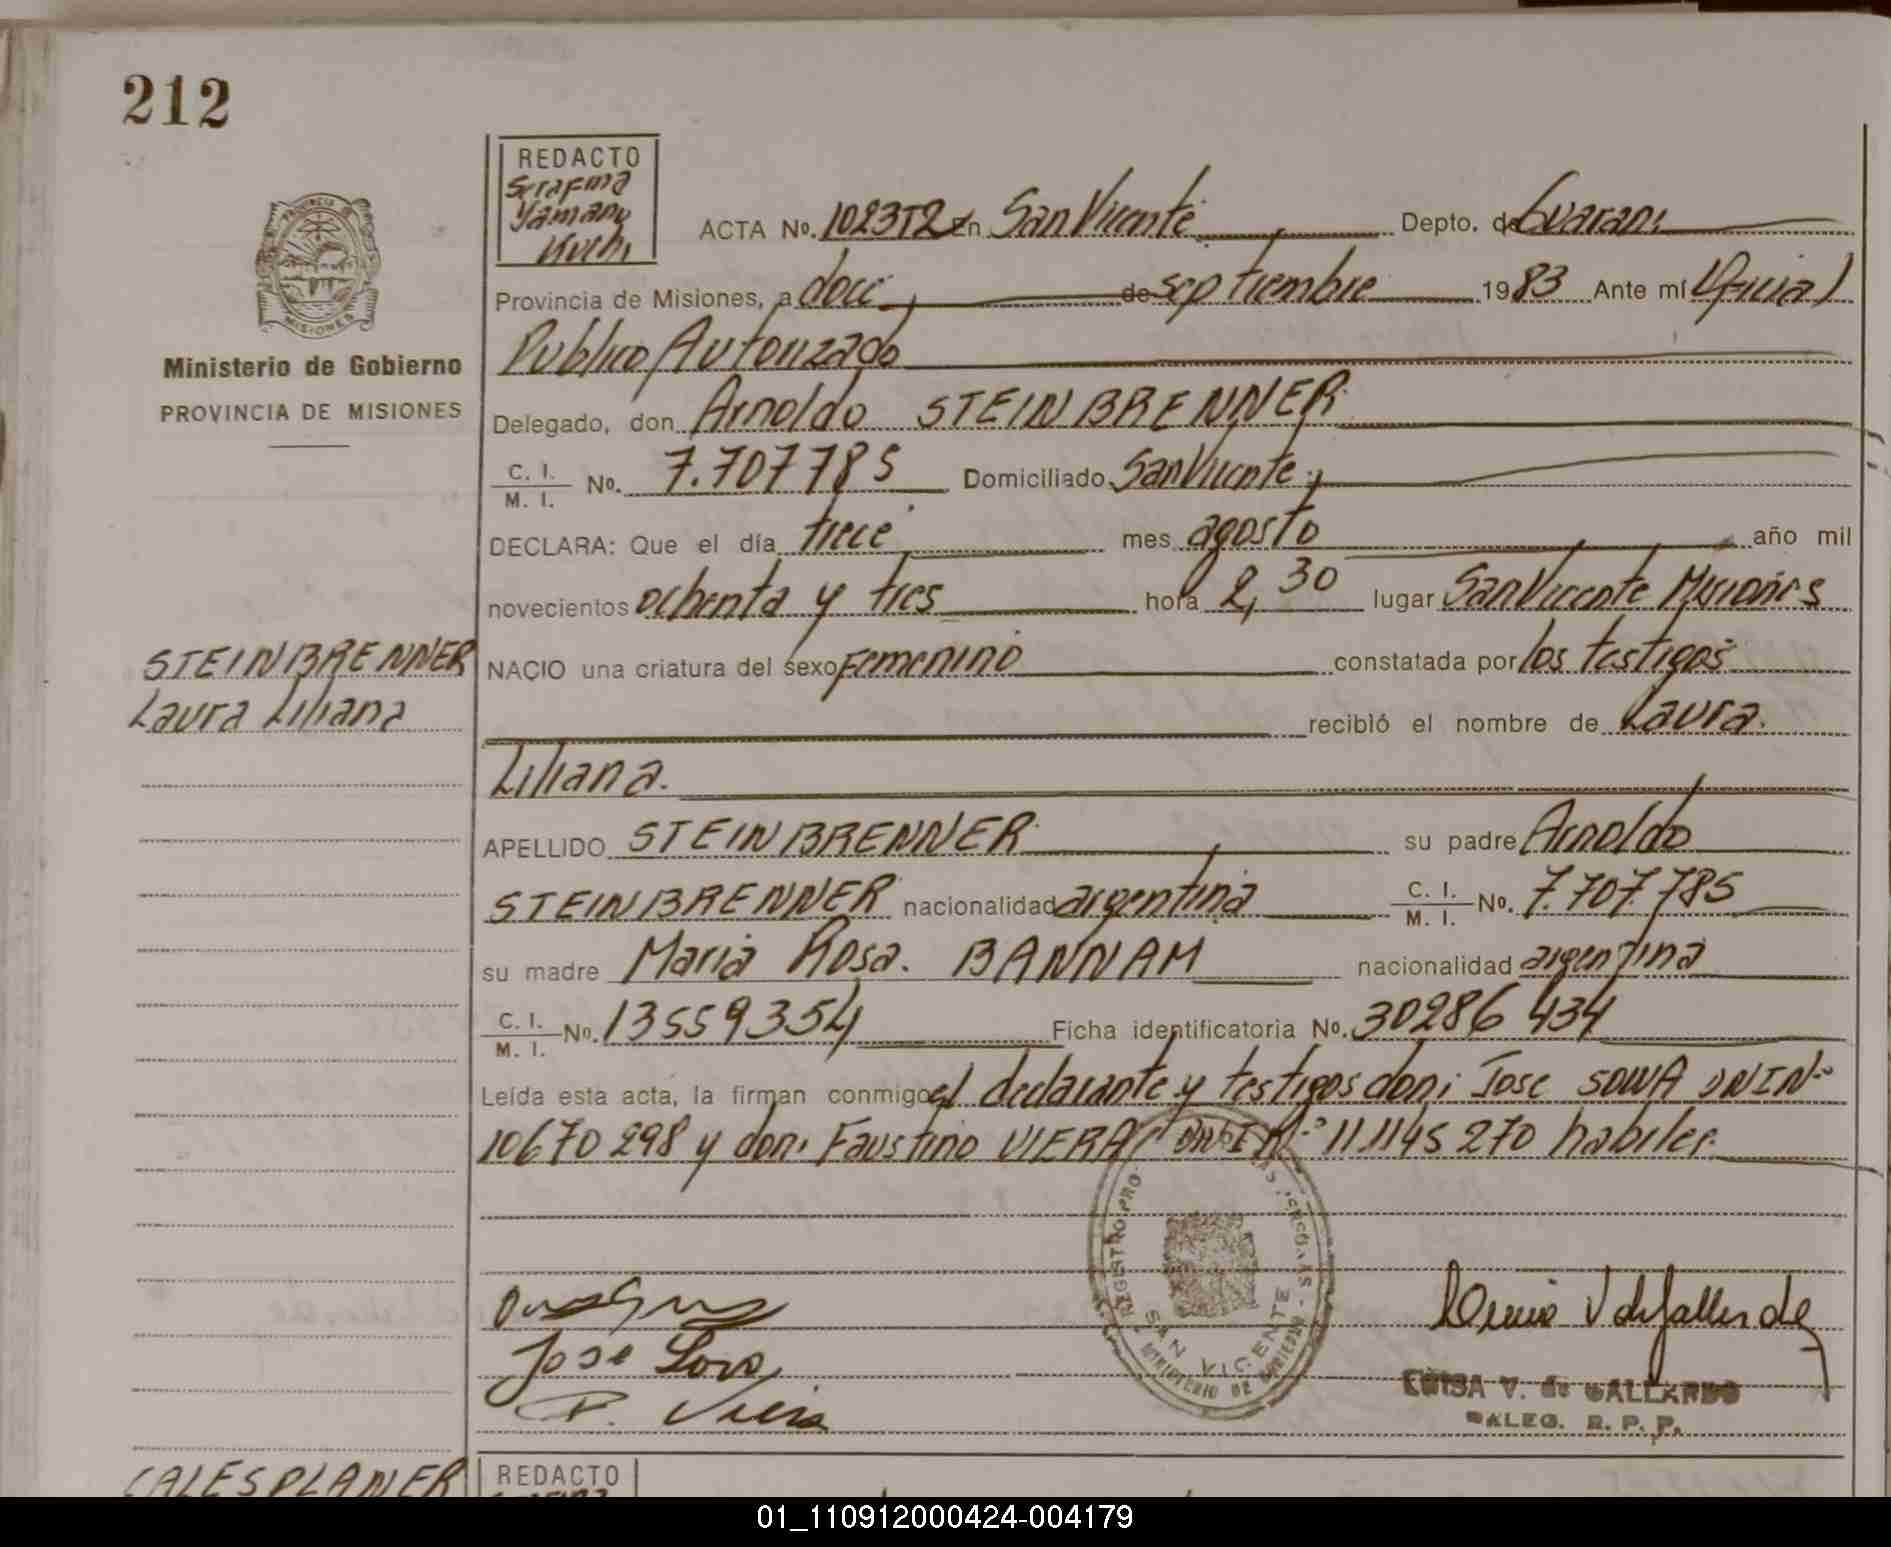 212
REDACTO
Serafina
Yamany
Kuchi
ACTA No. 1023T2 En San Vicente Depto. de Guarani
Provincia de Misiones, a doce de septiembre 1983 Ante mí Oficial
Publico Autorizado
Ministerio de Gobierno
PROVINCIA DE MISIONES
Delegado, don Arnoldo STEINBRENNER
C. I. / M. I. No. 7.707785 Domiciliado San Vicente
DECLARA: Que el día trece mes agosto año mil
novecientos ochenta y tres hora 2,30 lugar San Vicente Misiones
STEINBRENNER
Laura Liliana
NACIO una criatura del sexo Femenino constatada por los testigos
recibió el nombre de Laura
Liliana.
APELLIDO STEINBRENNER su padre Arnoldo
STEINBRENNER nacionalidad argentina C. I. / M. I. No. 7.707.785
su madre Maria Rosa. BANNAM nacionalidad argentina
C. I. / M. I. No. 13559354 Ficha identificatoria No. 30286434
Leída esta acta, la firman conmigo el declarante y testigos don: Jose SOWA DNIN°
10670298 y don: Faustino VIERA DNI N° 11.145270 habiles
REGISTRO PRO
SAN VICENTE
MINISTERIO DE GOBIERNO
Jose Sova
F. Viera
LUISA V. de GALLARDO
DALEG. R. P. P.
REDACTO
01_110912000424-004179